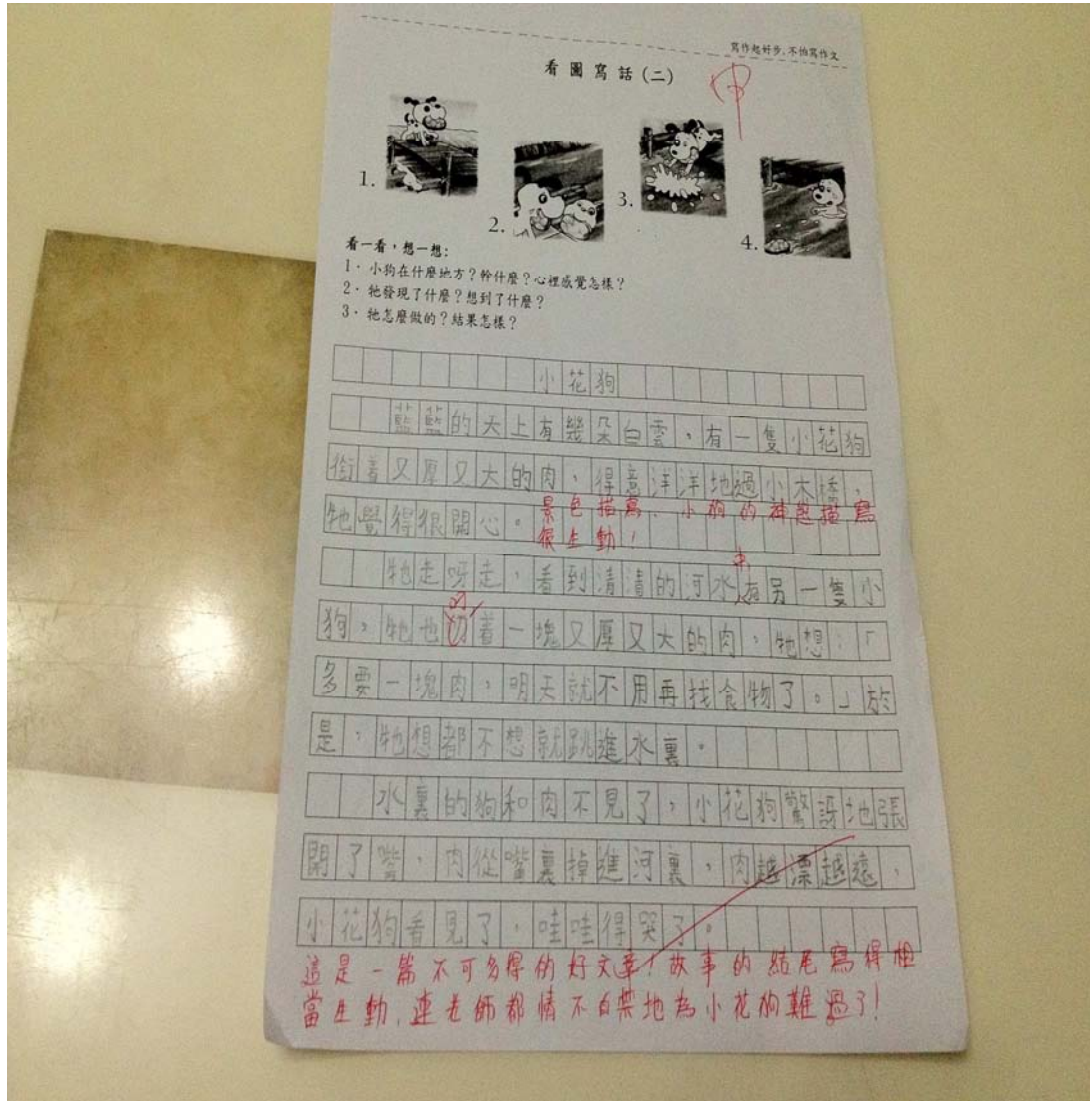 寫作起好步,不怕寫作文
看圖寫話(二)
甲
1.
2.
3.
4.
看一看,想一想:
1.小狗在什麼地方?幹什麼?心裡感覺怎樣?
2.牠發現了什麼?想到了什麼?
3.牠怎麼做的?結果怎樣?
小花狗
藍藍的天上有幾朵白雲,有一隻小花狗
銜着又厚又大的肉,得意洋洋地過小木橋,
牠覺得很開心。景色描寫、小狗的神態描寫
很生動!
中
牠走呀走,看到清清的河水有另一隻小
狗,牠也切着一塊又厚又大的肉,牠想:「
多要一塊肉,明天就不用再找食物了。」於
是,牠想都不想就跳進水裏。
水裏的狗和肉不見了,小花狗驚訝地張
開了嘴,肉從嘴裏掉進河裏,肉越漂越遠,
小花狗看見了,哇哇得哭了。
這是一篇不可多得的好文章!故事的結尾寫得相
當生動,連老師都情不自禁地為小花狗難過了!